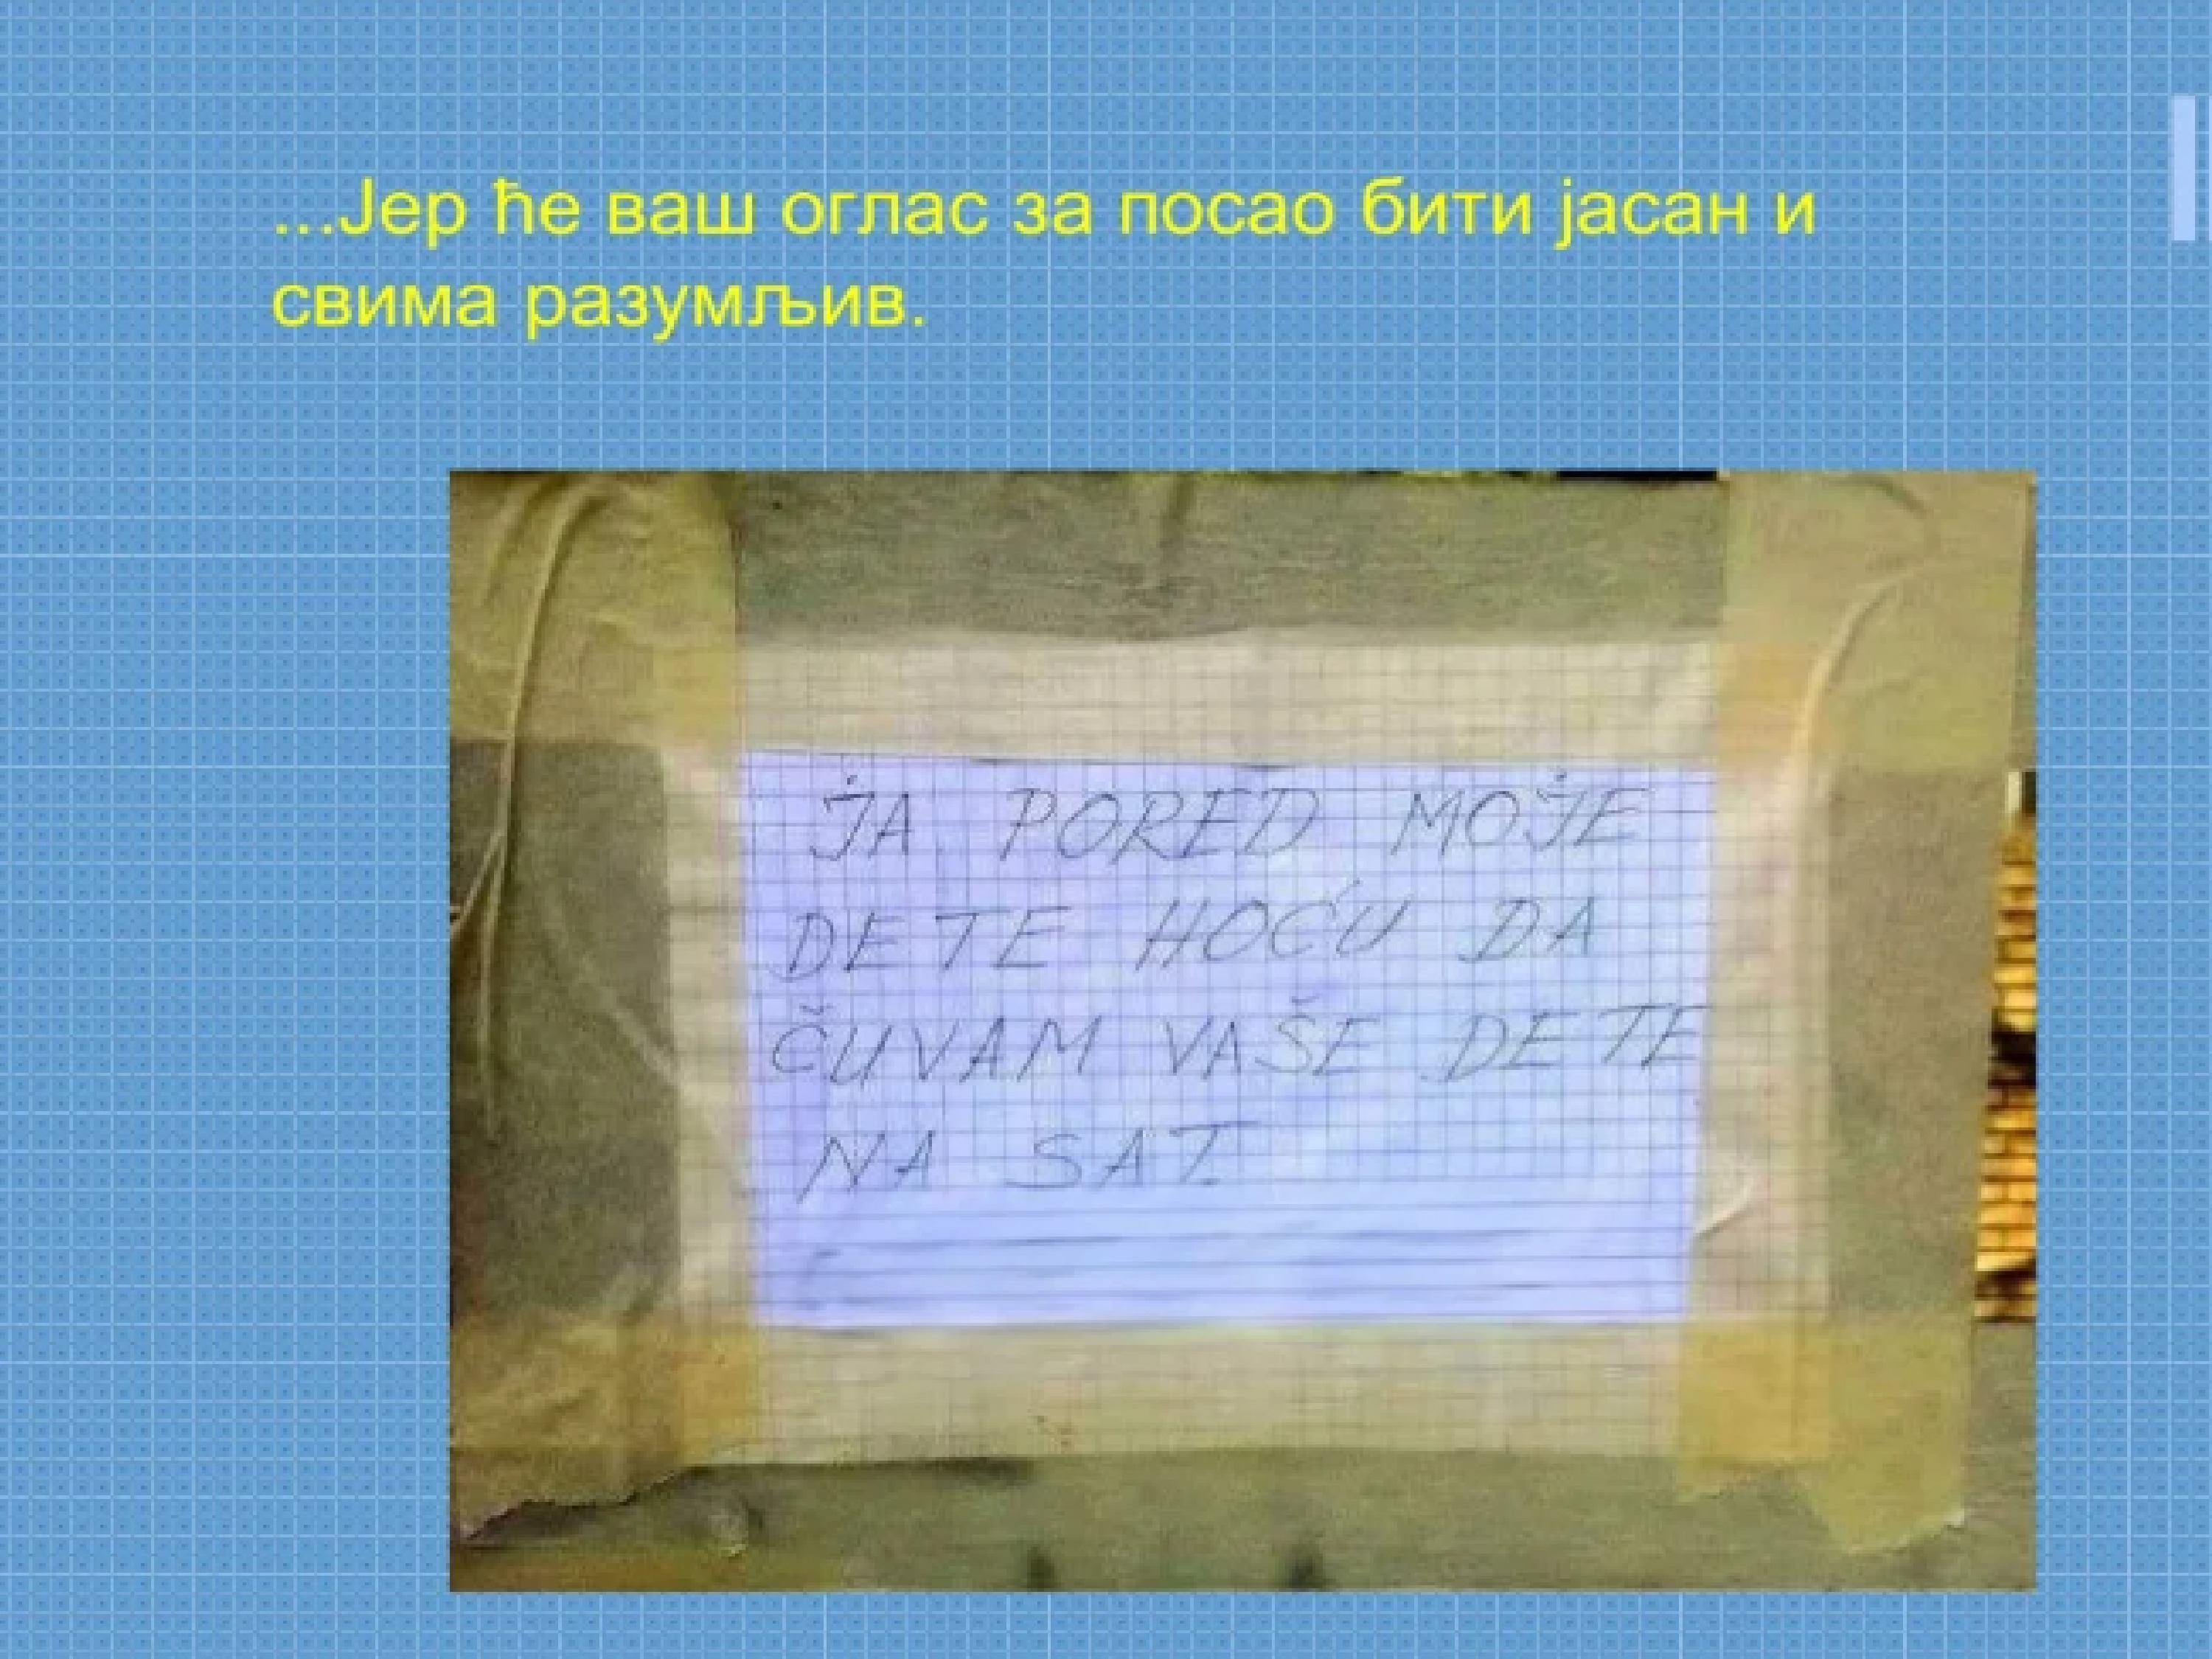 ...Јер ће ваш оглас за посао бити јасан и
свима разумљив.
JA PORED MOJE
DETE HOĆU DA
ČUVAM VAŠE DETE
NA SAT